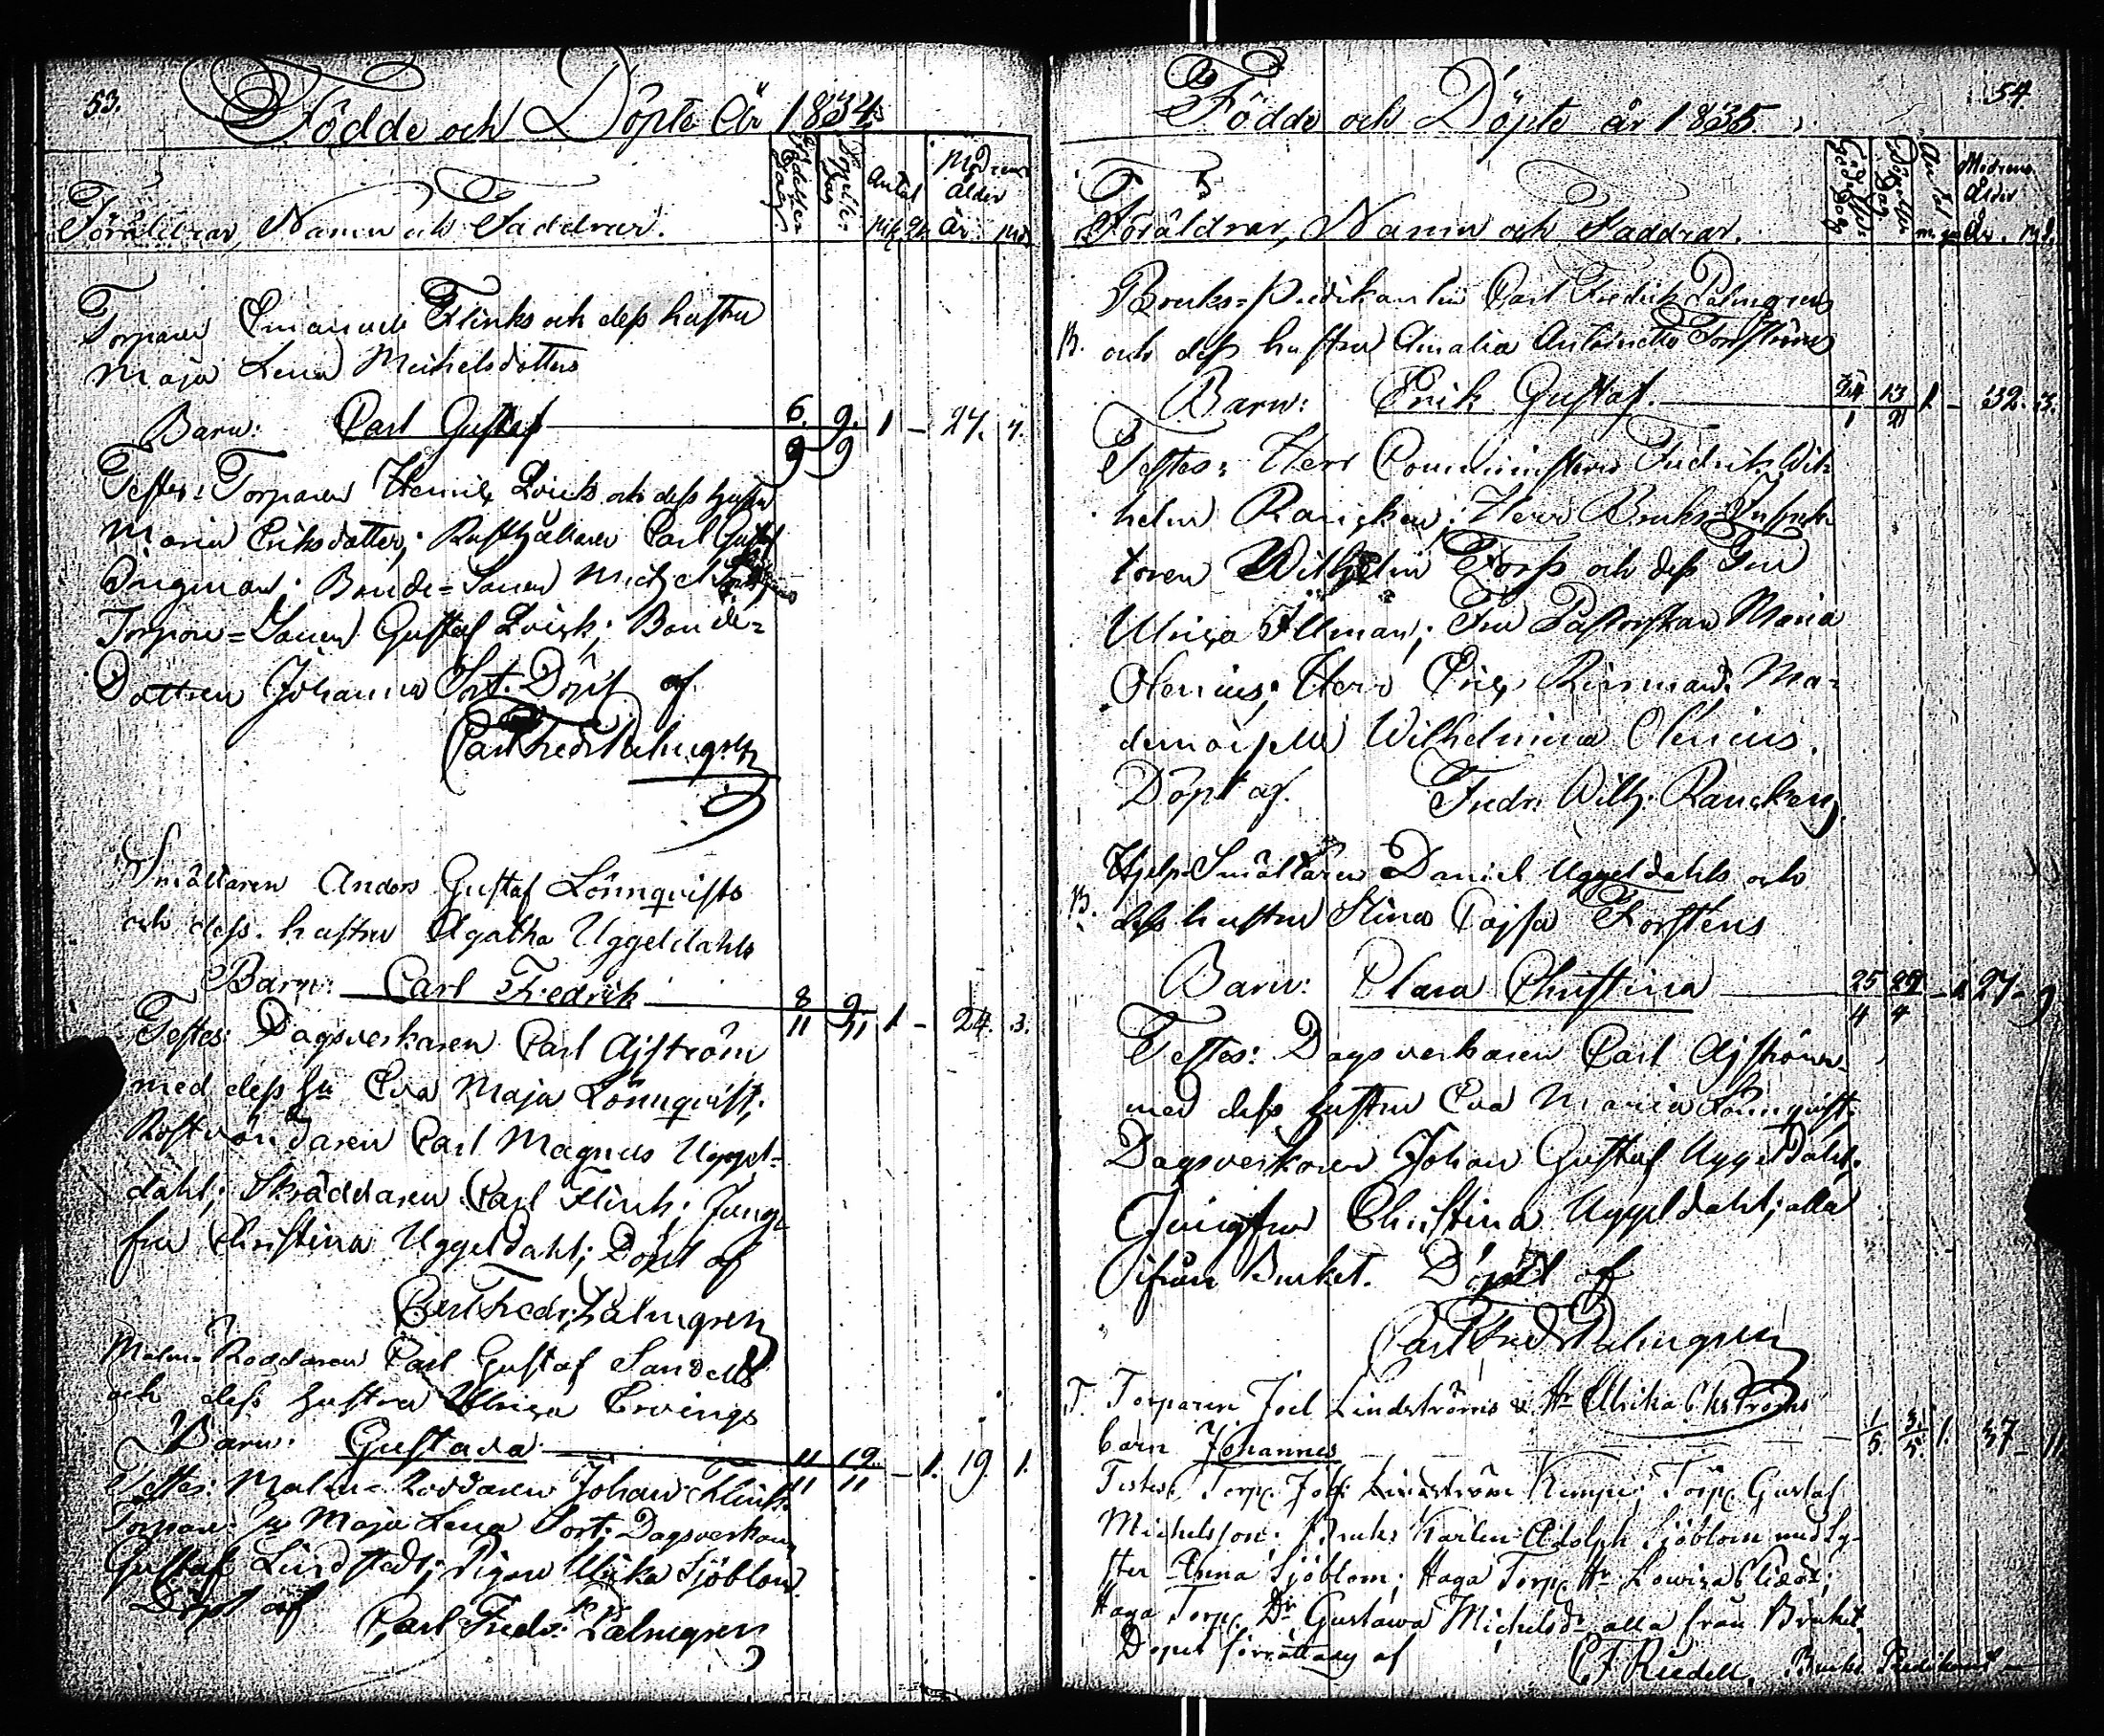 53.
Födde och Döpte År 1834.
Föräldrar, Namn och Faddrar.
Födelse Dag
Döpelse Dag
Antal
Mk. Qk.
Mödrens Ålder
År
Torparen Emanuel Flinks och dess hustru
Maja Lena Michelsdotters
Barn: Carl Gustaf 6. 9. 1 - 27. 7.
9 9
Testes: Torparen Henric Qvick och dess hustru
Maria Eriksdotter; Rusthållaren Carl Gustaf
Öngman; Bonde-Sonen Michel
Torpare-Sonen Gustaf Qvick; Bonde-
Dottren Johanna Sort. Döpt af
Carl Fredr Palmgren
Smältaren Anders Gustaf Lönnqvists
och dess hustru Agatha Uggeldahls
Barn: Carl Fredrik 8 9 1 - 24. 3.
11 11
Testes: Dagsverkaren Carl Ajström
med dess hu Eva Maja Lönnqvist;
Rostvändaren Carl Magnus Uggel-
dahl; Skräddaren Carl Flink; Jung-
fru Christina Uggeldahl; Döpt af
Carl Fredr: Palmgren
Malm-Roddaren Carl Gustaf Sandells
och dess hustru Ulrica Ervings
Barn: Gustava 11 12 - 1. 19. 1.
11 11
Testes: Malm-Roddaren Johan Flink
Torpare hu Maja Lena Sort; Dagsverkaren
Gustaf Lindstedt; Pigan Ulrika Sjöblom.
Döpt af Carl Fredr: Palmgren
54.
Födde och Döpte år 1835.
Föräldrar, Namn och Faddrar.
Födelse Dag
Döpelse Dag
Antal
m. q.
Mödrens Ålder
År. M.
Bruks-Predikanten Carl Fredrik Palmgrens
B. och dess hustru Amalia Antoinette Forsströms
Barn: Erik Gustaf. 24 13 1 - 32. 3.
1 2
Testes: Herr Comministern Fredrik Wil-
helm Rancken; Herr Bruks-Inspek-
toren Wilhelm Forss och dess Fru
Ulrica Illman; Fru Pastorskan Maria
Olenius; Herr Eric Rinman; Ma-
demoiselle Wilhelmina Olenius.
Döpt af. Fredr: Wilh: Rancken
Hjelp-Smältaren Daniel Uggeldahls och
B. dess hustru Stina Cajsa Forstens
Barn: Clara Christina 25 29 - 1 27 - 9
4 4
Testes: Dagsverkaren Carl Ajström
med dess hustru Eva Maria Lönnqvist;
Dagsverkaren Johan Gustaf Uggeldahl;
Jungfru Christina Uggeldahl; alla
ifrån Bruket. Döpt af
Carl Fred Palmgren
T. Torparen Joel Lindströms & Hu Ulrika Ekströms
barn Johannes 1 3 1. 37 - 11
5 5
Testes: Torp. Joh: Lindström Kimpi; Torp. Gustaf
Michelsson; Bruks Karlen Adolph Sjöblom med Sy-
ster Anna Sjöblom; Haga Torp. Hu Lowisa
Haga Torp. Dr Gustawa Michelsdr alla från Bruket
Dopet förrättadt af C F Riedell, Bruks Predikant